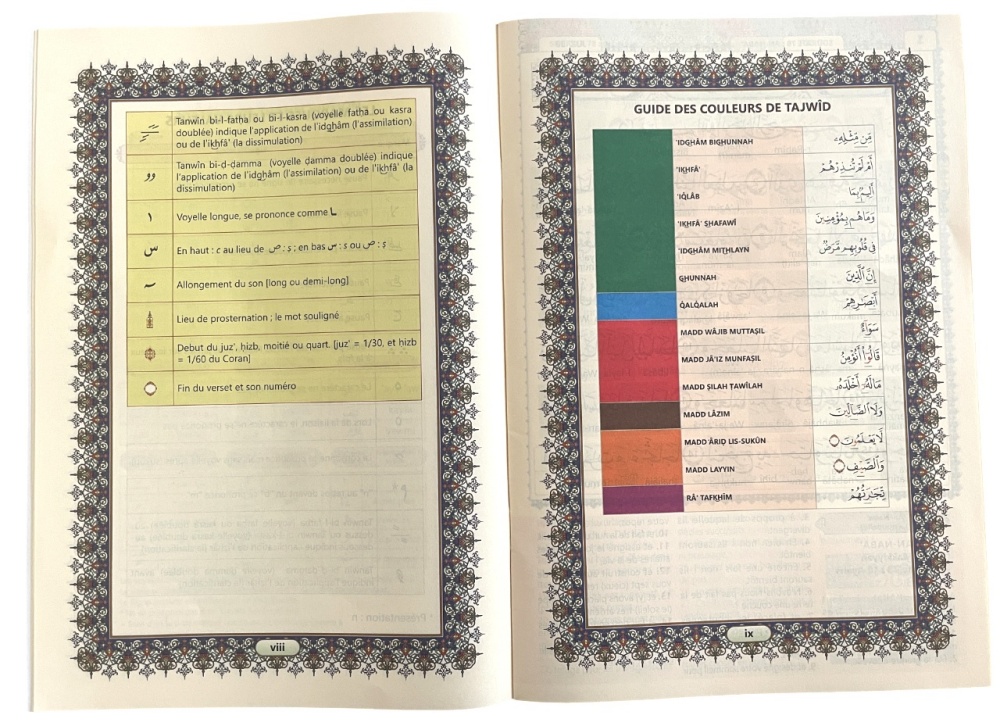 Tanwîn bi-l-fatḥa ou bi-l-kasra (voyelle fatḥa ou kasra
doublée) indique l'application de l'idghâm (l'assimilation)
ou de l'ikhfâ' (la dissimulation)
Tanwîn bi-d-ḍamma (voyelle ḍamma doublée) indique
l'application de l'idghâm (l'assimilation) ou de l'ikhfâ' (la
dissimulation)
Voyelle longue, se prononce comme ـا
س En haut : c au lieu de ص : s ; en bas س : s ou ص : s
Allongement du son [long ou demi-long]
Lieu de prosternation ; le mot souligné
Debut du juz', ḥizb, moitié ou quart. [juz' = 1/30, et ḥizb
= 1/60 du Coran]
Fin du verset et son numéro
viii
GUIDE DES COULEURS DE TAJWÎD
'IDGHÂM BIGHUNNAH مِّن مِّثْلِهِۦ
'IKHFÂ' أَمْ لَمْ تُنذِرْهُمْ
'IQLÂB أَلِيمٌۢ بِمَا
'IKHFÂ' SHAFAWÎ وَمَا هُم بِمُؤْمِنِينَ
'IDGHÂM MITHLAYN فِى قُلُوبِهِم مَّرَضٌ
GHUNNAH إِنَّ ٱلَّذِينَ
QALQALAH أَبْصَٰرِهِمْ
MADD WÂJIB MUTTAṢIL سَوَآءٌ
MADD JÂ'IZ MUNFAṢIL قَالُوٓا۟ أَنُؤْمِنُ
MADD ṢILAH ṬAWÎLAH مَالَهُۥٓ أَخْلَدَهُۥ
MADD LÂZIM وَلَا ٱلضَّآلِّينَ
MADD 'ÂRIḌ LIS-SUKÛN لَا يَعْلَمُونَ
MADD LAYYIN وَٱلصَّيْفِ
RÂ' TAFKHÎM تِّجَٰرَتُهُمْ
ix